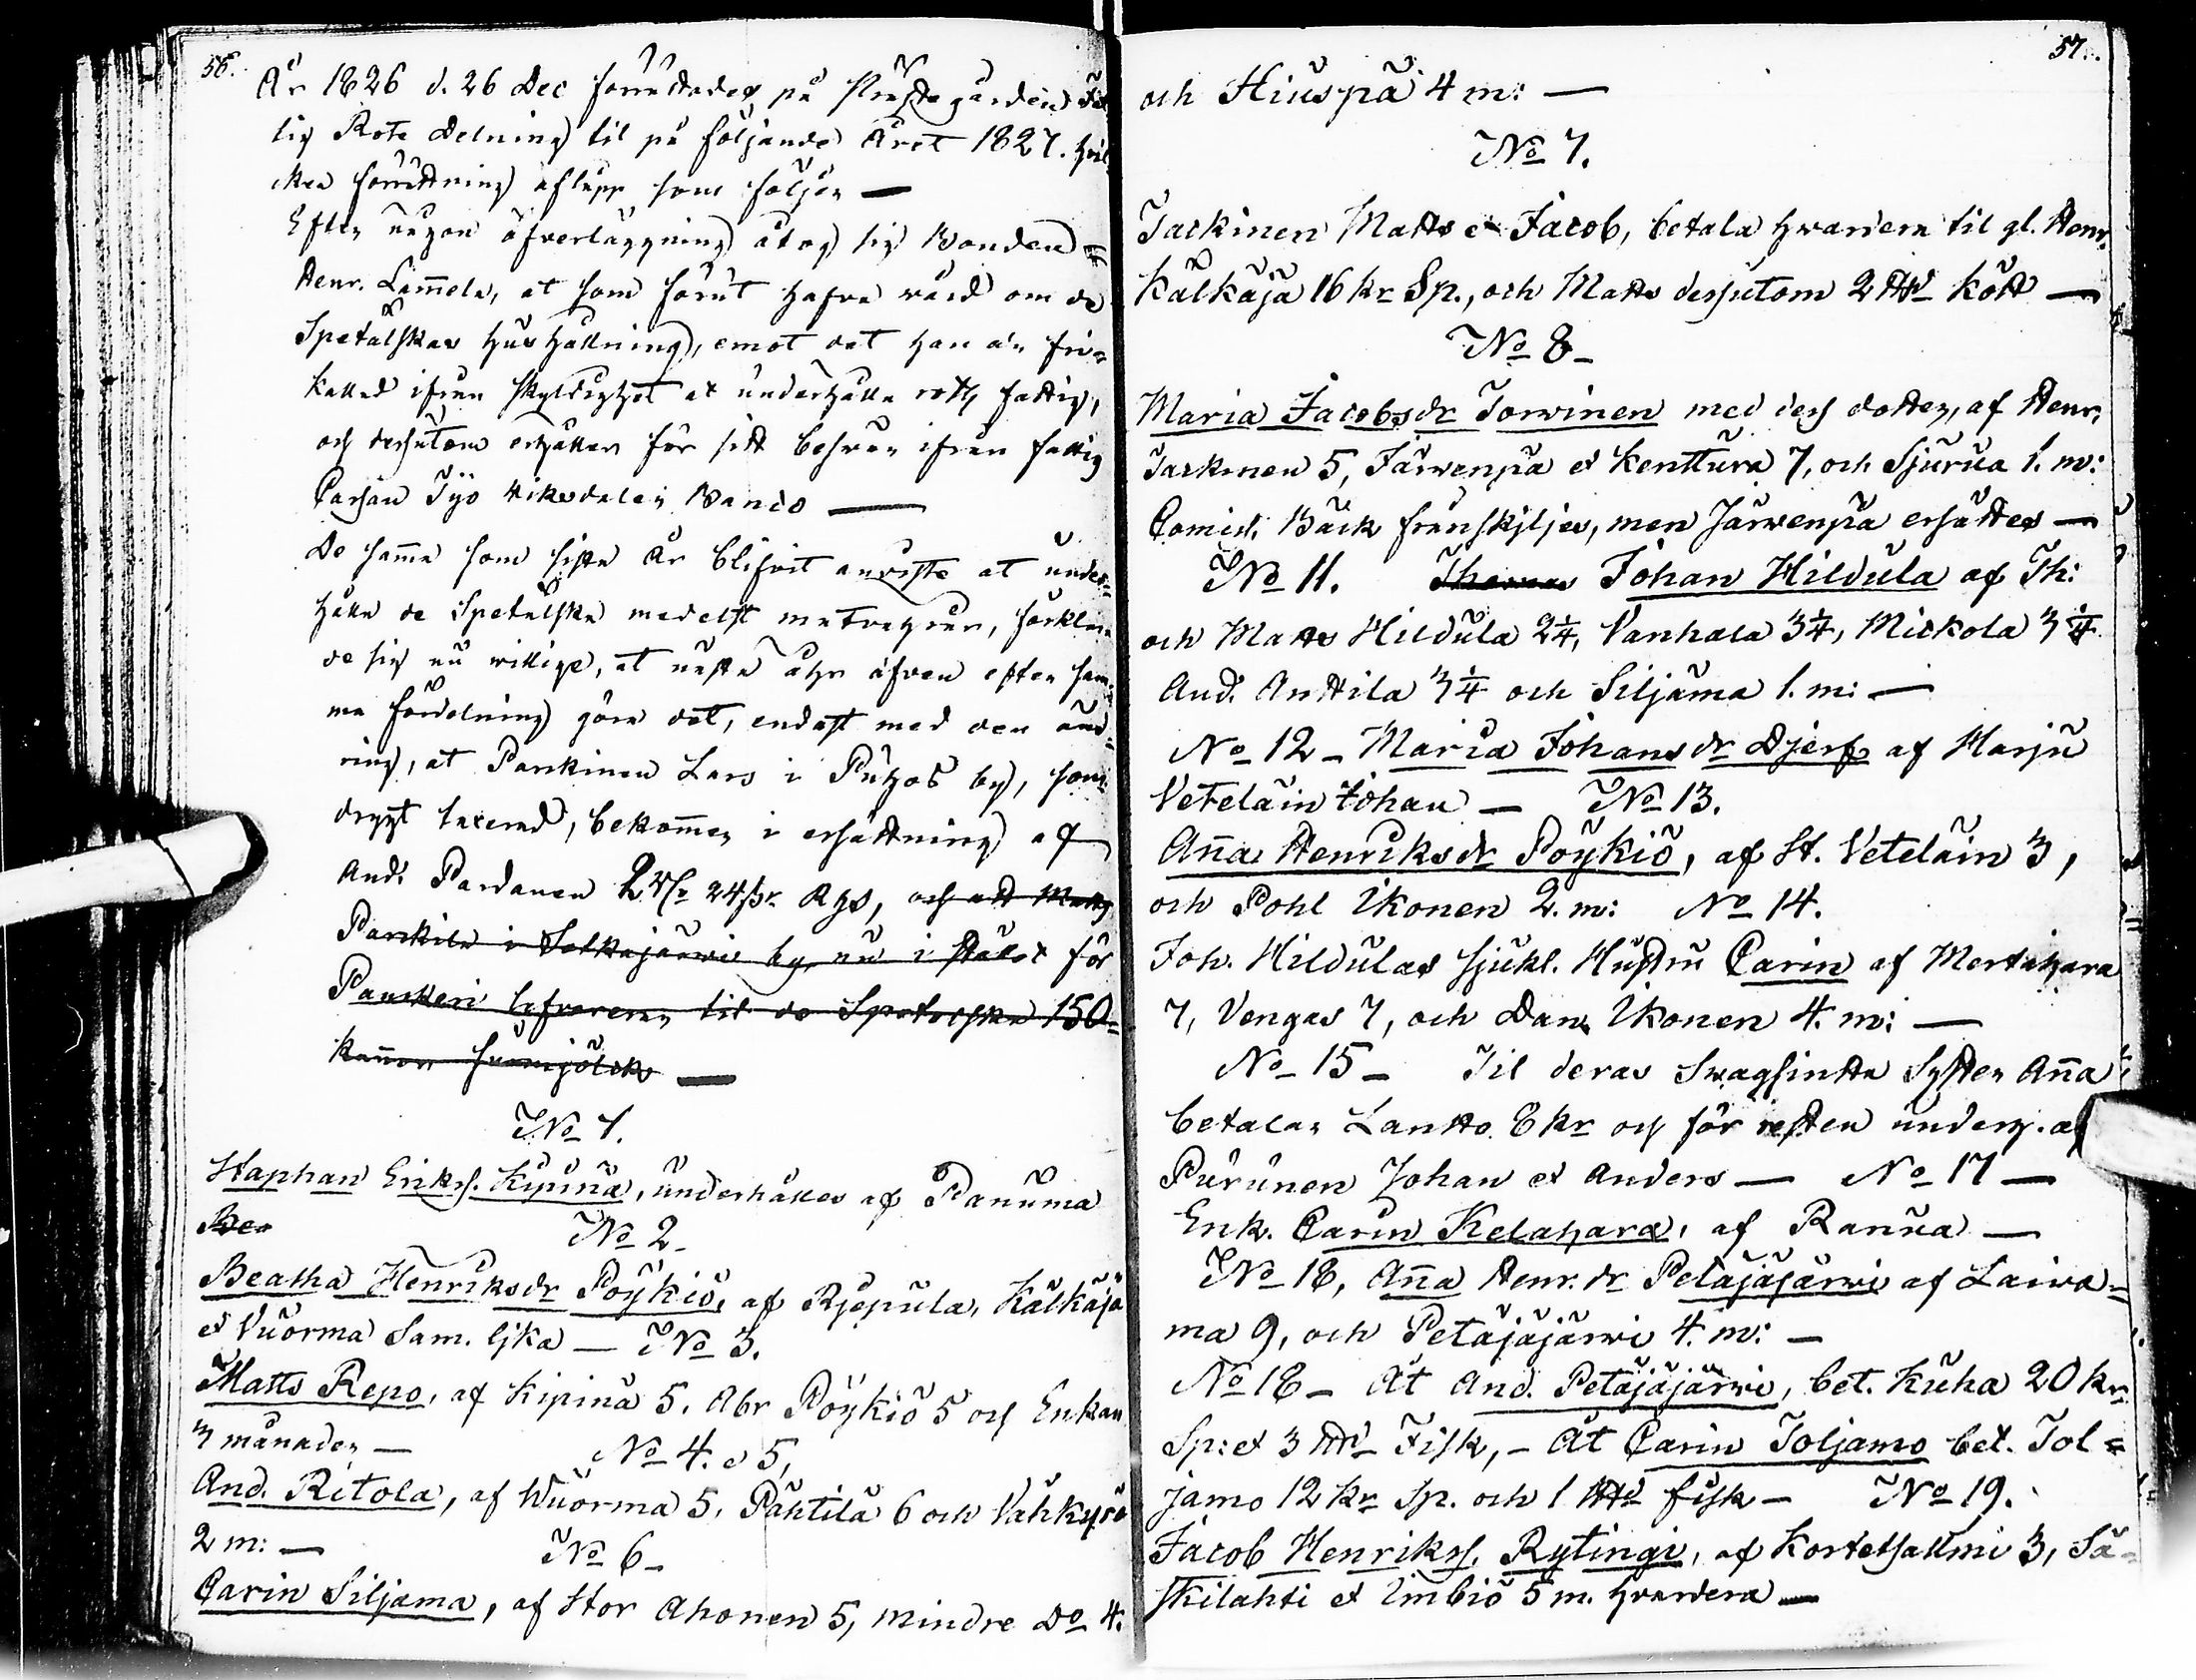 56.
År 1826 d. 26 Dec förrättades på Prästegården
lig Rote delning til på följande Året 1827. hvil
ken förrättning aflupp som följer —
Efter någon öfverläggning åtog sig Bonden
Henr. Lam̄ela, at som förut hafva vård om de
Spetälskas hushållning, emot det han är fri=
kallad ifrån skyldighet at underhålla rothfattig,
och dessutom erhåller för sitt besvär ifrån fattig
Cassan Tjo Riksdaler Banco —
De sam̄a som sista År blifvit anviste at under=
hålla de Spetälska medelst matvahror, förkla
de sig nu willige, at nästa åhr äfven efter sam=
ma fördelning göra det, endast med den änd=
ring, at Parkinen Lars i Puhos by, som
drygt taxerad, bekom̄er i ersättning af
And. Pardanen 2 24 Rgs, och att Matts
Parkila i Sotkajärwi by nu i stället för
lefvererar til de Spetelska 150=
kan̄or surmjölck —
No 1.
Staphan Eriks. Kipinä, underhålles af Panuma
No 2 -
Beatha Henriksdr Pöykiö, af Rjepula, Kälkäjä
et Vuorma Sam. lika — No 3.
Matts Repo, af Kipinä 5, Abr Pöykiö 5 och Enkan
3 månader —
No 4. o 5,
And. Ritola, af Wuorma 5, Pähtilä 6 och Vähkyrö
2 m: —
No 6 -
Carin Siljama, af Stor Ahonen 5, mindre Do 4.
57.
och Hiuspä 4 m: —
No 7.
Tarkinen Matts et Jacob, betala hvardera til gl. Henr.
Kälkäjä 16 kr Sp., och Matts dessutom 2 kött —
No 8 -
Maria Jacobsdr Torwinen med dess dotter, af Henr.
Tarkinen 5, Järwenpä et Kenttura 7, och Sjurua 1. m:
Comist. Bäck frånskiljes, men Järwenpä ersättes —
No 11. Thomas Johan Hildula af Th:
och Matts Hildula 2¼, Vanhala 3¼, Mickola 3¼
And. Anttila 3¼ och Siljama 1. m: —
No 12 - Maria Johansdr Djerf af Harju
Veteläin Johan — No 13.
An̄a Henriksdr Pöykiö, af St. Veteläin 3,
och Pohl Ikonen 2. m: No 14.
Joh. Hildulas sjukl. Hustru Carin af Mertahara
7, Vengas 7, och Dan. Ikonen 4. m: —
No 15 - Til deras Swagsinta Syster An̄a
betalar Lantto 8 kr och för resten underh. af
Purunen Johan et Anders — No 17 —
Enk. Carin Kelahara, af Ranua —
No 18, An̄a Henr. dr Petäjäjärwi af Laiwa=
ma 9, och Petäjäjärwi 4. m: —
No 18 - Åt And. Petäjäjärwi, bet. Kuha 20 kr
Sp: et 3 Fisk, - Åt Carin Toljamo bet. Tol=
jamo 12 kr Sp. och 1 fisk — No 19.
Jacob Henriks. Rytingi, af Kortetsalmi 3, Sä=
skilahti et Impiö 5 m. hvardera —